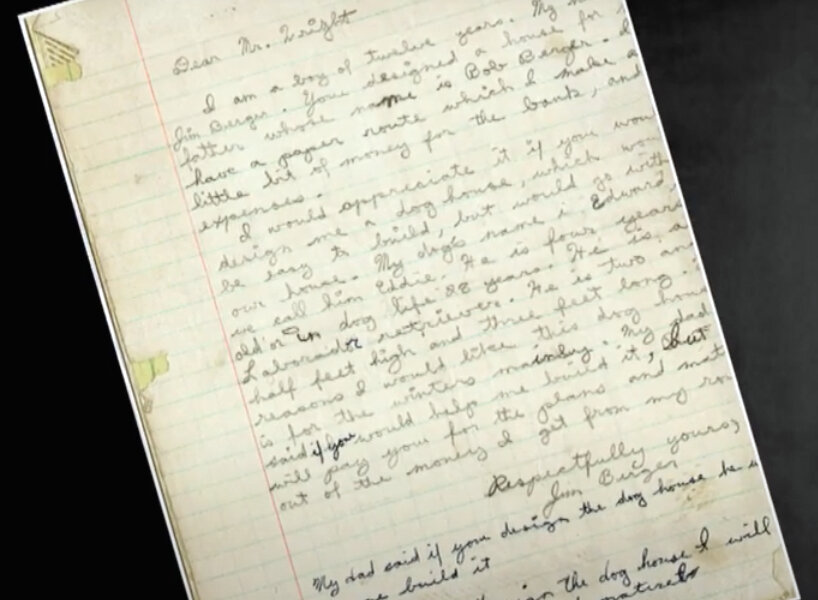 Dear Mr. Wright
I am a boy of twelve years. My
Jim Berger. You designed a house for
father whose name is Bob Berger. I
have a paper route which I make a
little bit of money for the bank, and
expenses.
I would appreciate it if you wou
design me a dog house, which wou
be easy to build, but would go with
our house. My dog's name is Edward
we call him Eddie. He is four years
old or in dog life 28 years. He is a
Laborador retriever. He is two and
half feet high and three feet long.
reasons I would like this dog hous
is for the winters mainly. My dad
said if you would helps me build it, but
will pay you for the plans and mat
out of the money I get from my ro
Respectfully yours,
Jim Berger
My dad said if you design the dog house he
me build it
the dog house I will